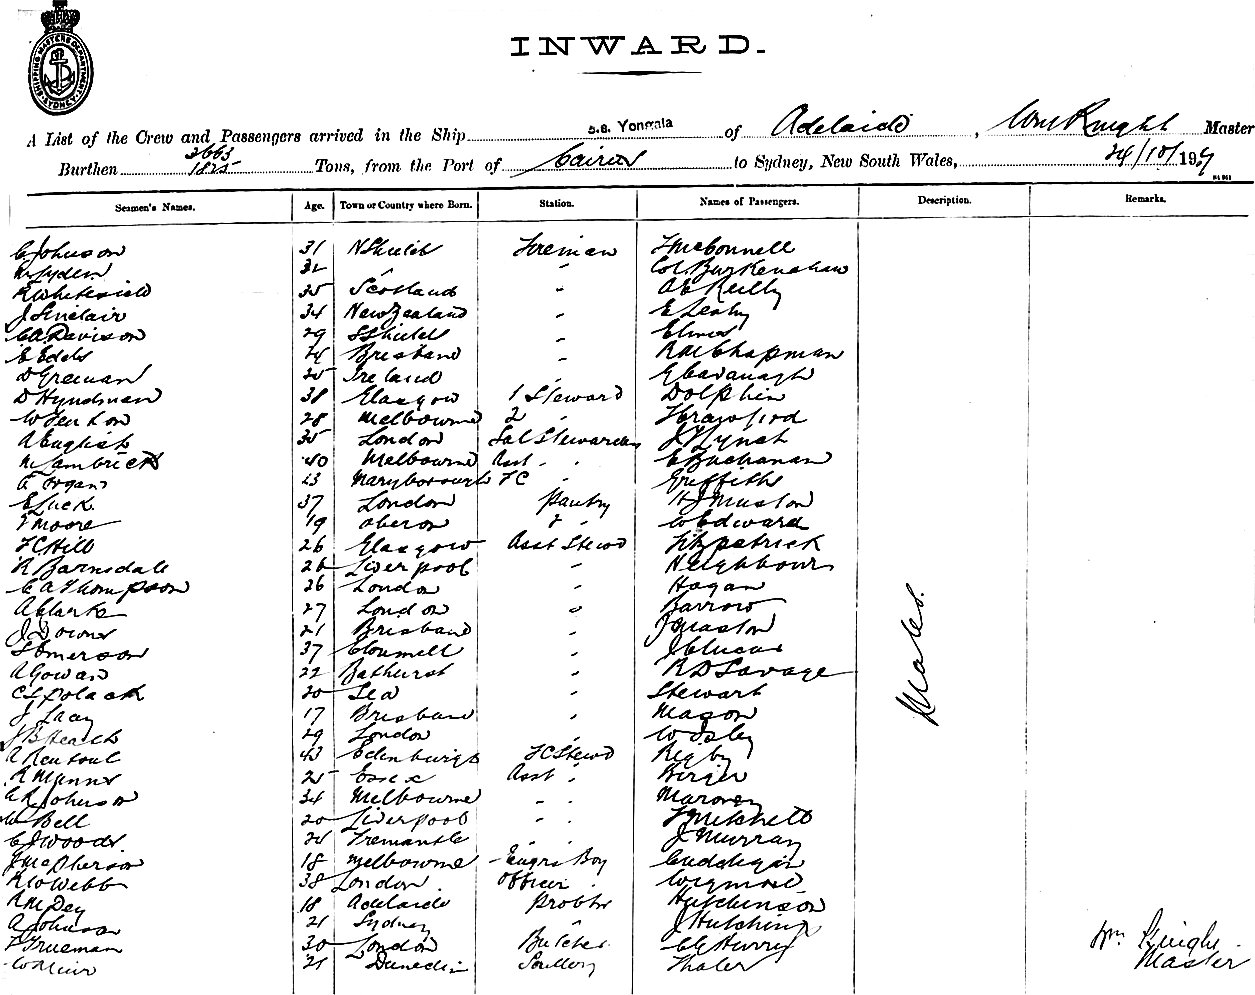 SHIPPING MASTER'S DEPARTMENT SYDNEY
INWARD.
A List of the Crew and Passengers arrived in the Ship s.s. Yongala of Adelaide, Wm Knight Master
Burthen 3663 1825 Tons, from the Port of Cairns to Sydney, New South Wales, 24/10/1907
Seamen's Names. Age. Town or Country where Born. Station. Names of Passengers. Description. Remarks.
C Johnson 31 N Shields Foreman McConnell
Lyden 32 " " Col Burkenshaw
R Whitefield 35 Scotland " O E Reilly
J Sinclair 34 New Zealand " E Leahy
C A Davison 29 S Shields " Elmes
E Edds 24 Brisbane " R M Chapman
D Greenan 25 Ireland " G Cavanagh
D Hyndman 38 Glasgow 1 Steward Dolphin
W Fenton 28 Melbourne 2 " Crawford
A English 35 London Sal Stewardess J Lynch
Lambrick 40 Melbourne Asst " " E Buchanan
Organ Maryborough FC " Griffiths
E Luck. 37 London Pantry H J Muston
T Moore 19 Oberon 2 " W Edward
F C Hill 26 Glasgow Asst Stewd Fitzpatrick
R Barnsdale 26 Liverpool " Neighbour
C A Thompson 26 London " Hogan
A Clarke 27 London " Barrow
J Downs 21 Brisbane " J Maston
S Omerson 37 Clonmell " J C Lucas
A Gowan 22 Bathurst " R D Savage
C S Polack 20 Sea " Stewart
J Lacy 17 Brisbane " Mason
J B Heath 29 London " W Isley
A Rentoul 43 Edenburgh FC Stewd Rigby
R Manns 25 Essex Asst " Berger
A R Johnson 34 Melbourne " " Maroney
W Bell 20 Liverpool " " F Mitchell
C J Woods. 24 Fremantle " " J Murray
J McPherson 18 Melbourne Engrs Boy Cuddigan
R W Webb 38 London. Officer " Wigmore
A M Dey 18 Adelaide Probtr Hutchinson
A Johnson 21 Sydney " J Hutching
F Trueman 30 London Butcher C G Hurry
W Muir 21 Dunedin Scullery Thaler
Males.
Wm Knight
Master